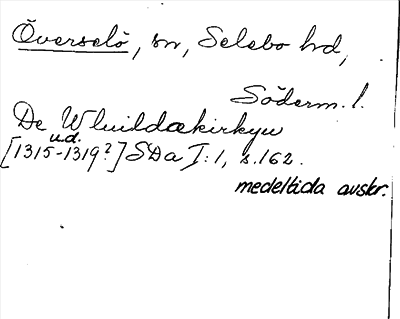 Överselö, sn, Selebo hd,
Söderm. l.
De Wluildækirkyu
u.d.
[1315-1319?] SDa I:1, s.162.
medeltida avskr.